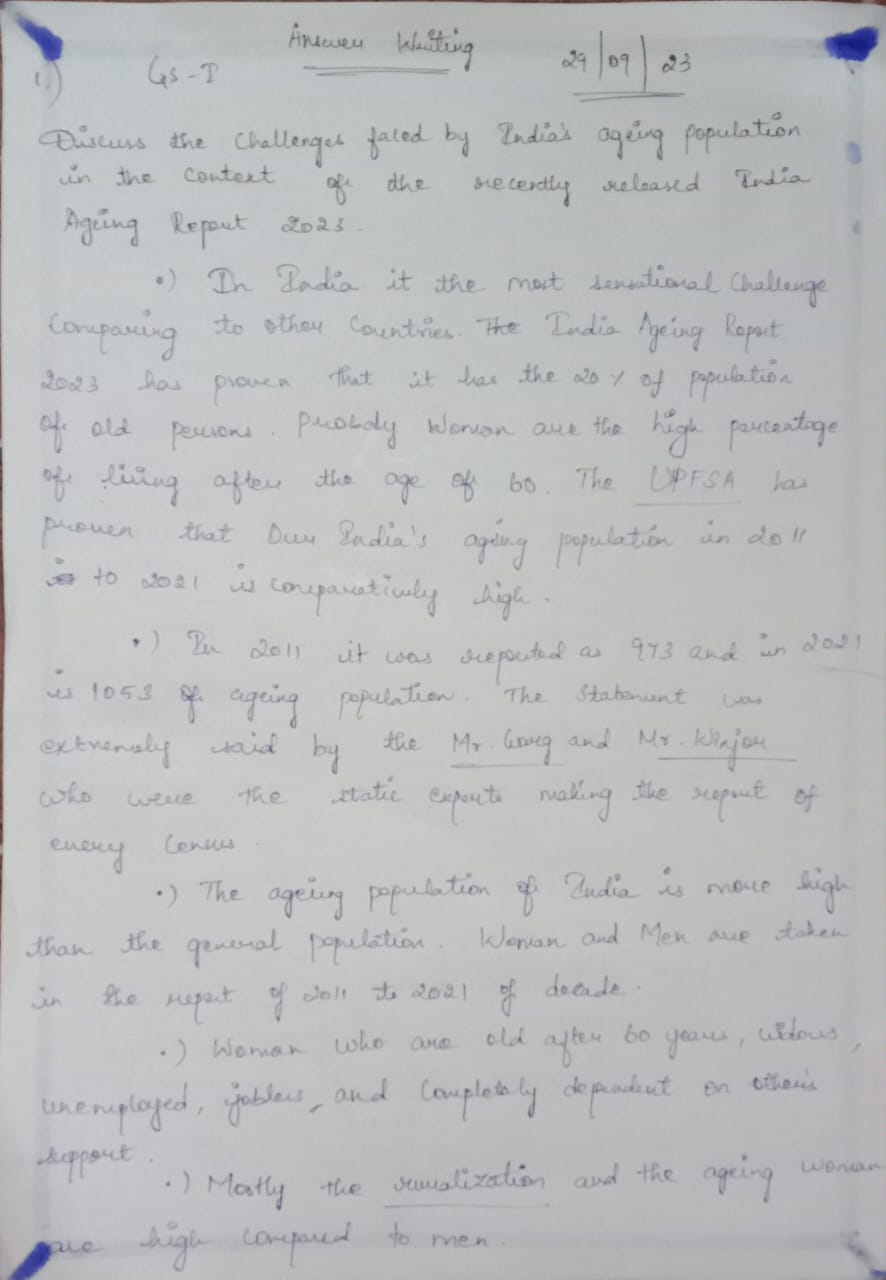 Answer Writing
29/09/23
1) GS-I
Discuss the challenges faced by India's ageing population
in the context of the recently released India
Ageing Report 2023.
•) In India it the most sensational challenge
Comparing to other Countries. The India Ageing Report
2023 has proven that it has the 20 % of population
of old persons. Woman are the high percentage
of living after the age of 60. The UPFSA has
proven that Our India's ageing population in 2011
to 2021 is comparatively high.
•) In 2011 it was reported as 973 and in 2021
is 1053 of ageing population. The Statement was
extremely said by the Mr. and Mr.
who were the static experts making the report of
every Census.
•) The ageing population of India is more high
than the general population. Woman and Men are taken
in the report of 2011 to 2021 of decade.
•) Woman who are old after 60 years, widows,
unemployed, jobless, and Completely dependent on other's
support.
•) Mostly the ruralization and the ageing woman
are high compared to men.